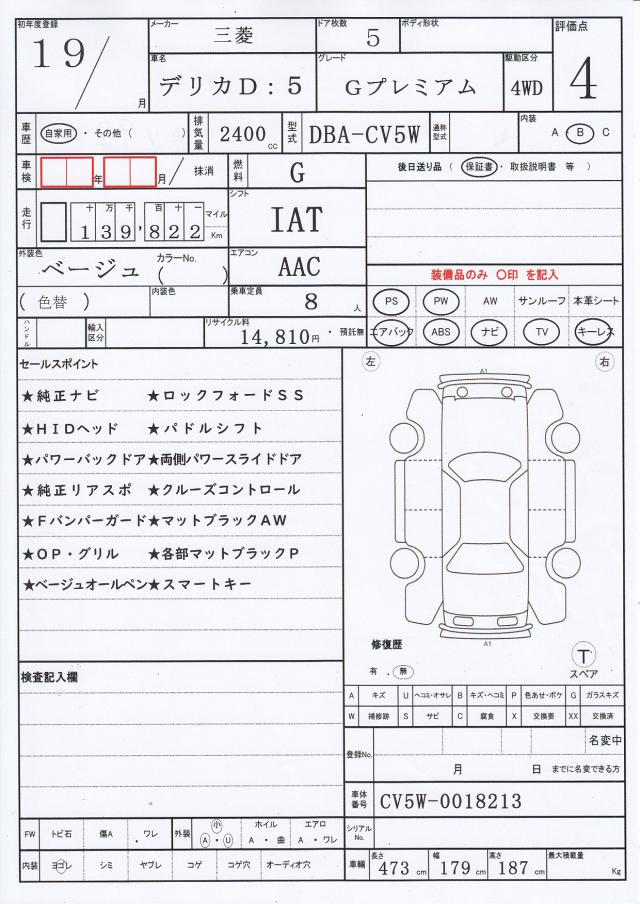 初年度登録 19 / 月
メーカー 三菱
ドア枚数 5
ボディ形状
評価点 4
車名 デリカD:5
グレード Gプレミアム
駆動区分 4WD
車歴 自家用 ・ その他 ( )
排気量 2400 cc
型式 DBA-CV5W
通称型式
内装 A ・ B C
車検 年 月 / 抹消
燃料 G
後日送り品 ( 保証書 ・ 取扱説明書 等 )
走行 十 万 千 百 十 一 マイル Km
139,822
シフト IAT
外装色 ベージュ カラーNo. ( )
エアコン AAC
装備品のみ 〇印 を記入
( 色替 )
内装色
乗車定員 8 人
PS PW AW サンルーフ 本革シート
ハンドル
輸入区分
リサイクル料 14,810円 ・ 預託無
エアバック ABS ナビ TV キーレス
セールスポイント
★純正ナビ ★ロックフォードSS
★HIDヘッド ★パドルシフト
★パワーバックドア★両側パワースライドドア
★純正リアスポ ★クルーズコントロール
★Fバンパーガード★マットブラックAW
★OP・グリル ★各部マットブラックP
★ベージュオールペン★スマートキー
左 右
A1
A1
修復歴
有 . 無
T
スペア
検査記入欄
A キズ U ヘコミ・オサレ B キズ・ヘコミ P 色あせ・ボケ G ガラスキズ
W 補修跡 S サビ C 腐食 X 交換要 XX 交換済
登録No. 名変中
月 日 までに名変できる方
車体番号 CV5W-0018213
シリアルNo.
FW トビ石 傷A . ワレ
外装 小 A ・ U
ホイル A ・ 曲
エアロ A ・ ワレ
内装 ヨゴレ シミ ヤブレ コゲ コゲ穴 オーディオ穴
車輌 長さ 473 cm 幅 179 cm 高さ 187 cm 最大積載量 Kg